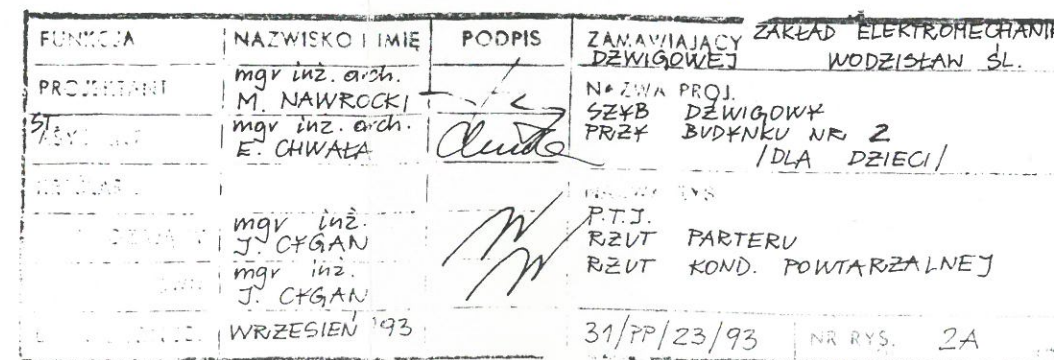 FUNKCJA NAZWISKO I IMIĘ PODPIS ZAMAWIAJĄCY ZAKŁAD ELEKTROMECHANIK
DŹWIGOWEJ WODZISŁAW ŚL.
PROJEKTANT mgr inż. arch. M. NAWROCKI
NAZWA PROJ.
SZYB DŹWIGOWY
PRZY BUDYNKU NR 2
/DLA DZIECI/
mgr inż. arch. E. CHWAŁA
P.T.J.
RZUT PARTERU
RZUT KOND. POWTARZALNEJ
mgr inż. J. CYGAN
mgr inż. J. CYGAN
WRZESIEŃ '93 31/PP/23/93 NR RYS. 2A